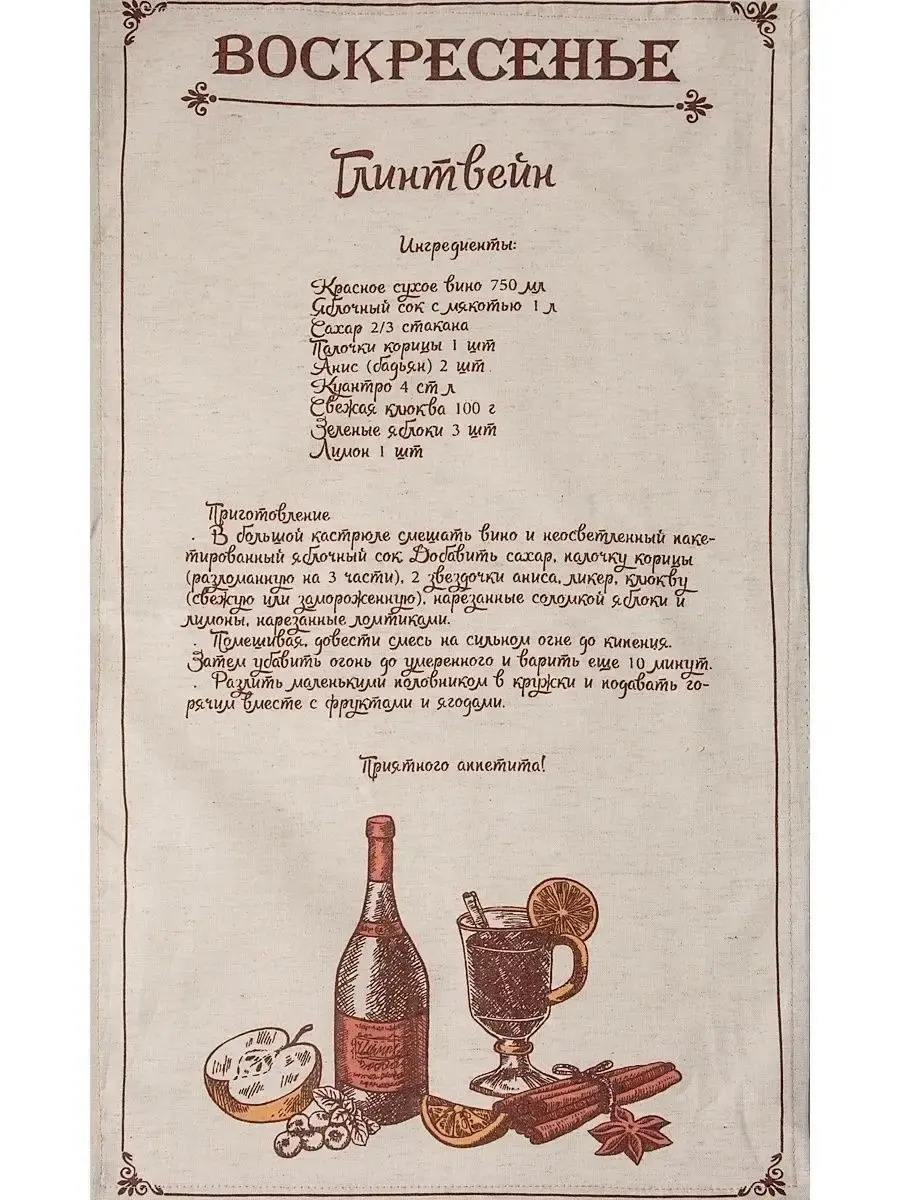 ВОСКРЕСЕНЬЕ
Глинтвейн
Ингредиенты:
Красное сухое вино 750 мл
Яблочный сок с мякотью 1 л
Сахар 2/3 стакана
Палочки корицы 1 шт
Анис (бадьян) 2 шт
Куантро 4 ст л
Свежая клюква 100 г
Зеленые яблоки 3 шт
Лимон 1 шт
Приготовление
. В большой кастрюле смешать вино и неосветленный паке-
тированный яблочный сок. Добавить сахар, палочку корицы
(разломанную на 3 части), 2 звездочки аниса, ликер, клюкву
(свежую или замороженную), нарезанные соломкой яблоки и
лимоны, нарезанные ломтиками.
. Помешивая, довести смесь на сильном огне до кипения.
Затем убавить огонь до умеренного и варить еще 10 минут.
. Разлить маленькими половником в кружки и подавать го-
рячим вместе с фруктами и ягодами.
Приятного аппетита!